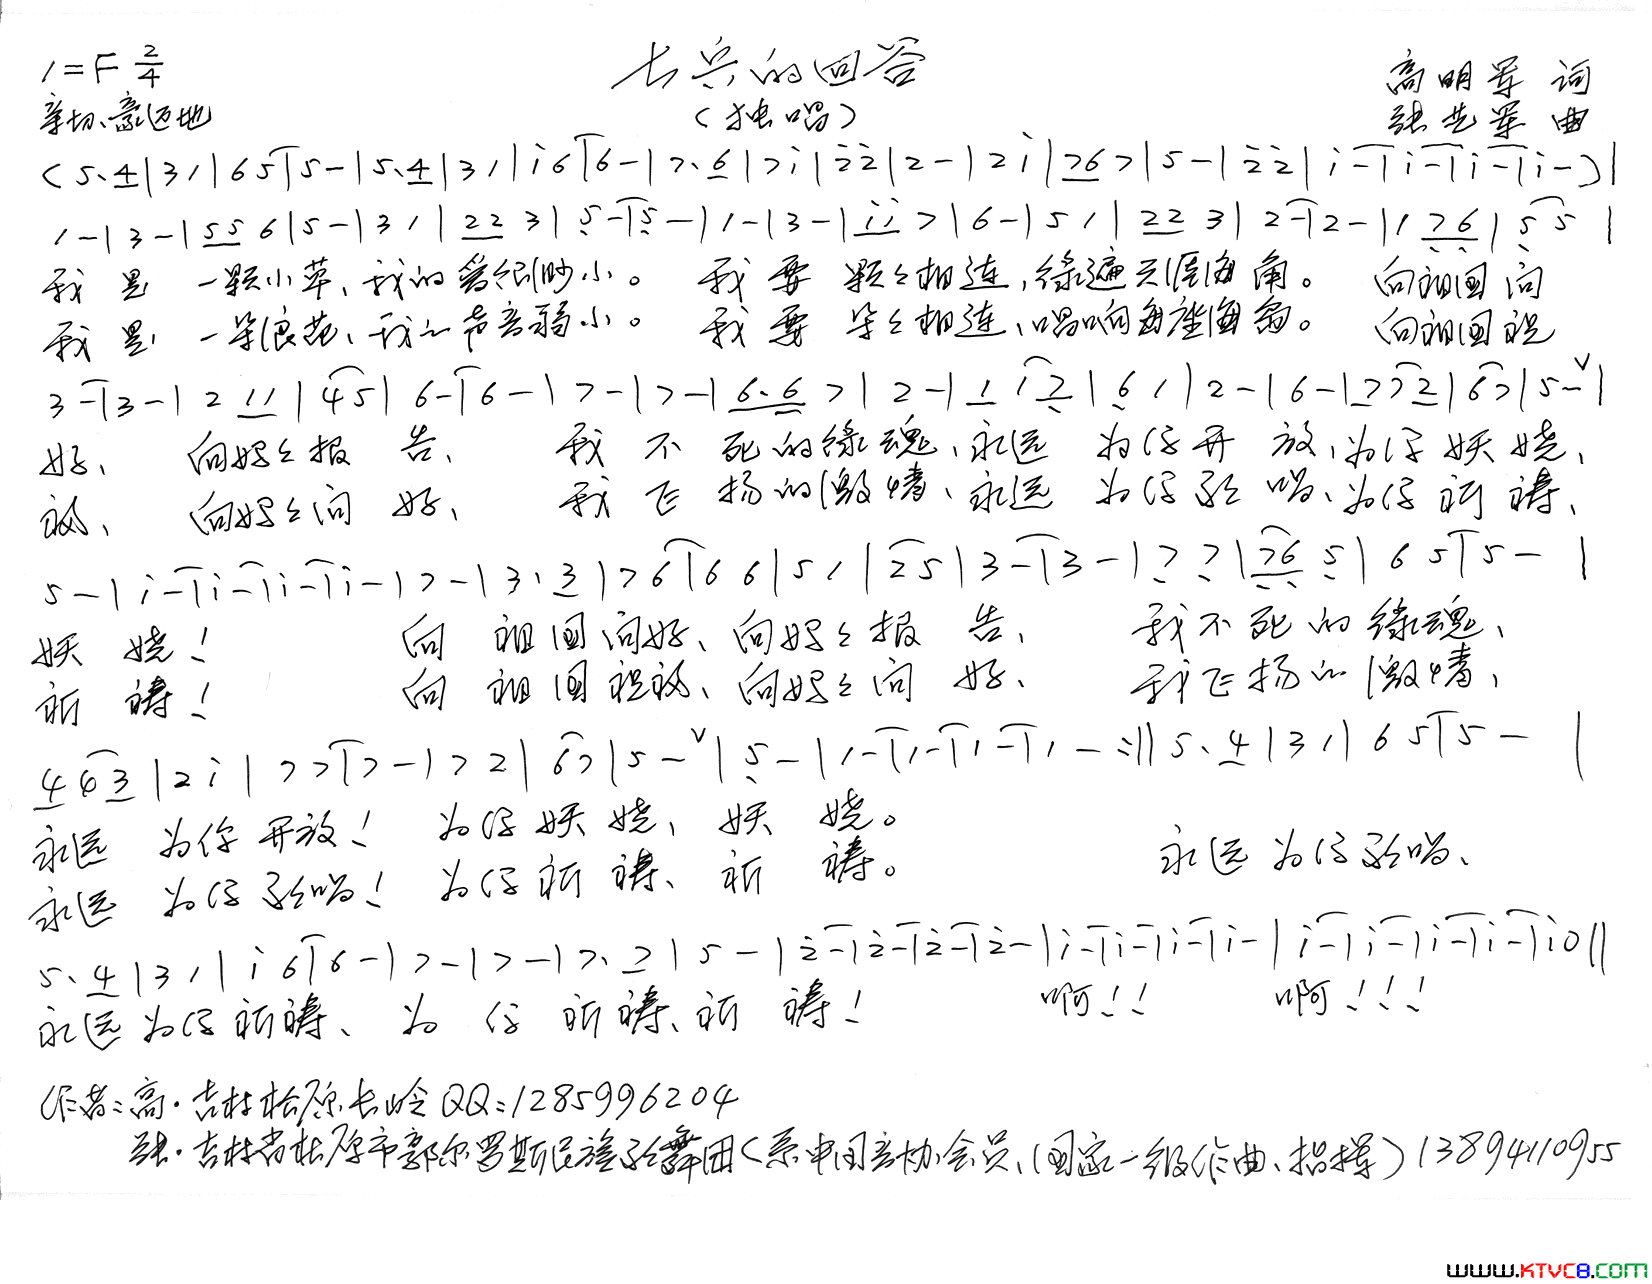 1=F 2/4
士兵的回答
高明军 词
亲切、豪迈地
(独唱)
张先军 曲
(5.4|31|65|5-|5.4|31|i6|6-|7.6|7i|2̇2̇|2-|2i|767|5-|2̇2̇|i-|i-|i-|i-)|
1-|3-|556|5-|31|223|5-|5-|1-|3-|ii7|6-|51|223|2-|2-|176|55|
我是一颗小草、我的爱很渺小。 我要颗々相连,绿遍天涯海角。 向祖国问
我是一朵浪花、我的声音弱小。 我要朵々相连、唱响每座海岛。 向祖国祝
3-|3-|211|45|6-|6-|7-|7-|6.67|2-|112|61|2-|6-|772|67|5-ˇ|
好、 向妈々报告、 我不死的绿魂、永远为你开放、为你妖娆、
福、 向妈々问好、 我飞扬的激情、永远为你歌唱、为你祈祷、
5-|i-|i-|i-|i-|7-|3.3|76|66|51|25|3-|3-|77|765|65|5-|
妖娆! 向祖国问好、向妈々报告、 我不死的绿魂、
祈祷! 向祖国祝福、向妈々问好、 我飞扬的激情、
463|2i|77|7-|72|67|5-ˇ|5-|1-|1-|1-|1-:‖5.4|31|65|5-|
永远为你开放! 为你妖娆、妖娆。
永远为你歌唱、
永远为你歌唱! 为你祈祷、祈祷。
5.4|31|i6|6-|7-|7-|7.7|5-|2̇-|2̇-|2̇-|2̇-|i-|i-|i-|i-|i-|i-|i-|i-|i0‖
永远为你祈祷、为你祈祷、祈祷! 啊!! 啊!!!
作者:高·吉林松原长岭QQ:1285996204
张·吉林省松原市郭尔罗斯民族歌舞团(系中国音协会员、国家一级作曲、指挥)13894110955
www.KTVC8.com